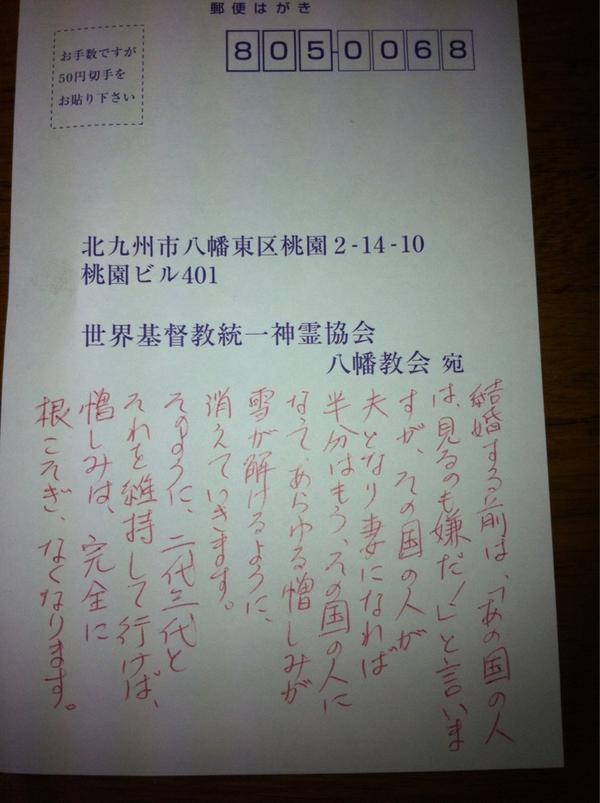 郵便はがき
お手数ですが
50円切手を
お貼り下さい
805-0068
北九州市八幡東区桃園2-14-10
桃園ビル401
世界基督教統一神霊協会
八幡教会 宛
結婚する前は、「あの国の人
は、見るのも嫌だ!」と言いま
すが、その国の人が
夫となり妻になれば
半分はもう、その国の人に
なって、あらゆる憎しみが
雪が解けるように、
消えていきます。
そのように、二代三代と
それを維持して行けば、
憎しみは、完全に
根こそぎ、なくなります。